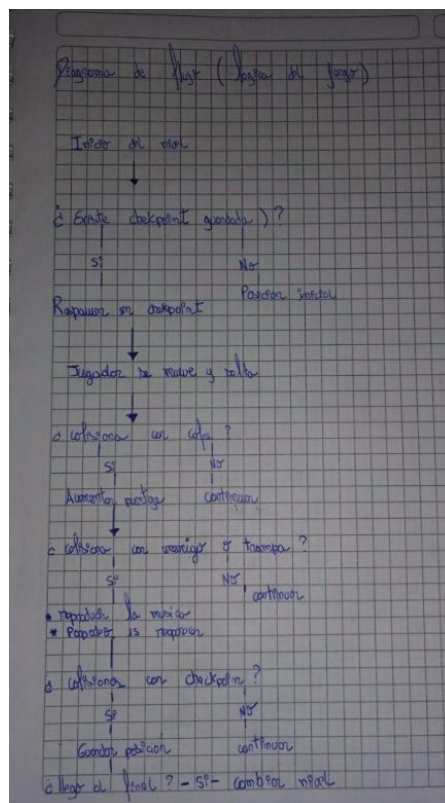 Diagrama de flujo (logica del juego)
Inicio del nivel
¿ Existe chekpoint guardada ) ?
Si No
Posicion inicial
Respawn en checkpoint
Jugador se mueve y salta
¿ colisiona con ?
Si No
Aumentar puntaje continuar
¿ colisiona con enemigo o trampa ?
Si No
continuar
• reproducir la musica
* respawn
¿ colisiona con checkpoin ?
Si No
Guardar posicion continuar
¿ llego al final ? - Si - cambiar nivel